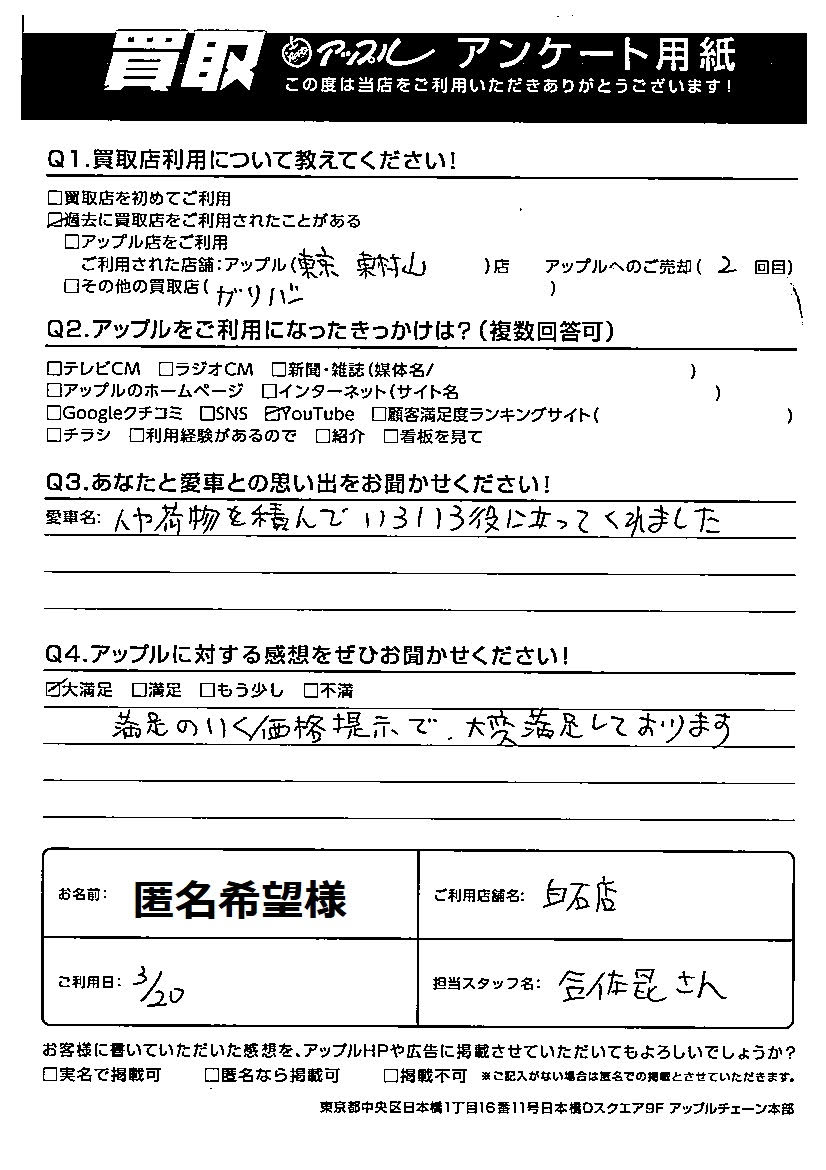 買取 アップル アンケート用紙
この度は当店をご利用いただきありがとうございます!
Q1.買取店利用について教えてください!
□買取店を初めてご利用
☑過去に買取店をご利用されたことがある
□アップル店をご利用
ご利用された店舗:アップル(東京 東村山 )店 アップルへのご売却( 2 回目)
□その他の買取店( ガリバー )
Q2.アップルをご利用になったきっかけは?(複数回答可)
□テレビCM □ラジオCM □新聞・雑誌(媒体名/ )
□アップルのホームページ □インターネット(サイト名 )
□Googleクチコミ □SNS ☑YouTube □顧客満足度ランキングサイト( )
□チラシ □利用経験があるので □紹介 □看板を見て
Q3.あなたと愛車との思い出をお聞かせください!
愛車名: 人や荷物を積んでいろいろ役に立ってくれました
Q4.アップルに対する感想をぜひお聞かせください!
☑大満足 □満足 □もう少し □不満
満足のいく価格提示で、大変満足しております
お名前: 匿名希望様
ご利用店舗名: 白石店
ご利用日: 3/20
担当スタッフ名: さん
お客様に書いていただいた感想を、アップルHPや広告に掲載させていただいてもよろしいでしょうか?
□実名で掲載可 □匿名なら掲載可 □掲載不可 ※ご記入がない場合は匿名での掲載とさせていただきます。
東京都中央区日本橋1丁目16番11号日本橋Dスクエア9F アップルチェーン本部